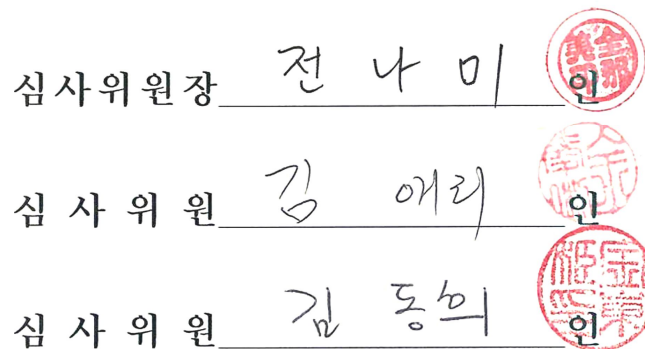 심사위원장 전나미 인
심사위원 김애리 인
심사위원 김동희 인